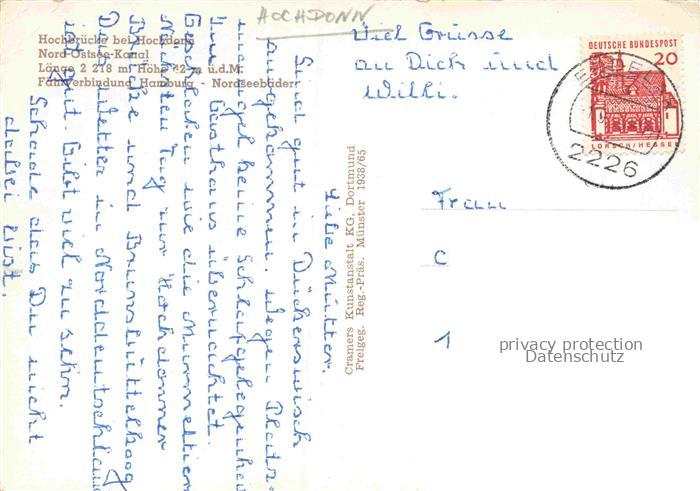 HOCHDONN
Hochbrücke bei Hochdonn
Nord-Ostsee-Kanal
Länge 2 218 m Höhe 42 m ü.d.M.
Fährverbindung Hamburg - Nordseebäder
Viel Grüsse
an Dich und
Willi.
DEUTSCHE BUNDESPOST
20
LORSCH/HESSEN
2226
Frau
C
1
privacy protection
Datenschutz
Cramers Kunstanstalt KG, Dortmund
Freigeg. Reg.-Präs. Münster 1938/65
Liebe Mutter.
Sind gut in
angekommen. Wegen Platz-
mangel keine Schlafgelegenheit
Im Gasthaus übernachtet.
Geschlafen wie die Murmeltiere
Nächsten Tag zur Hochdonner
Brücke und Brunsbüttelkoog
Das Wetter in Norddeutschland
ist gut. Gibt viel zu sehn.
Schade das Du nicht
dabei bist.